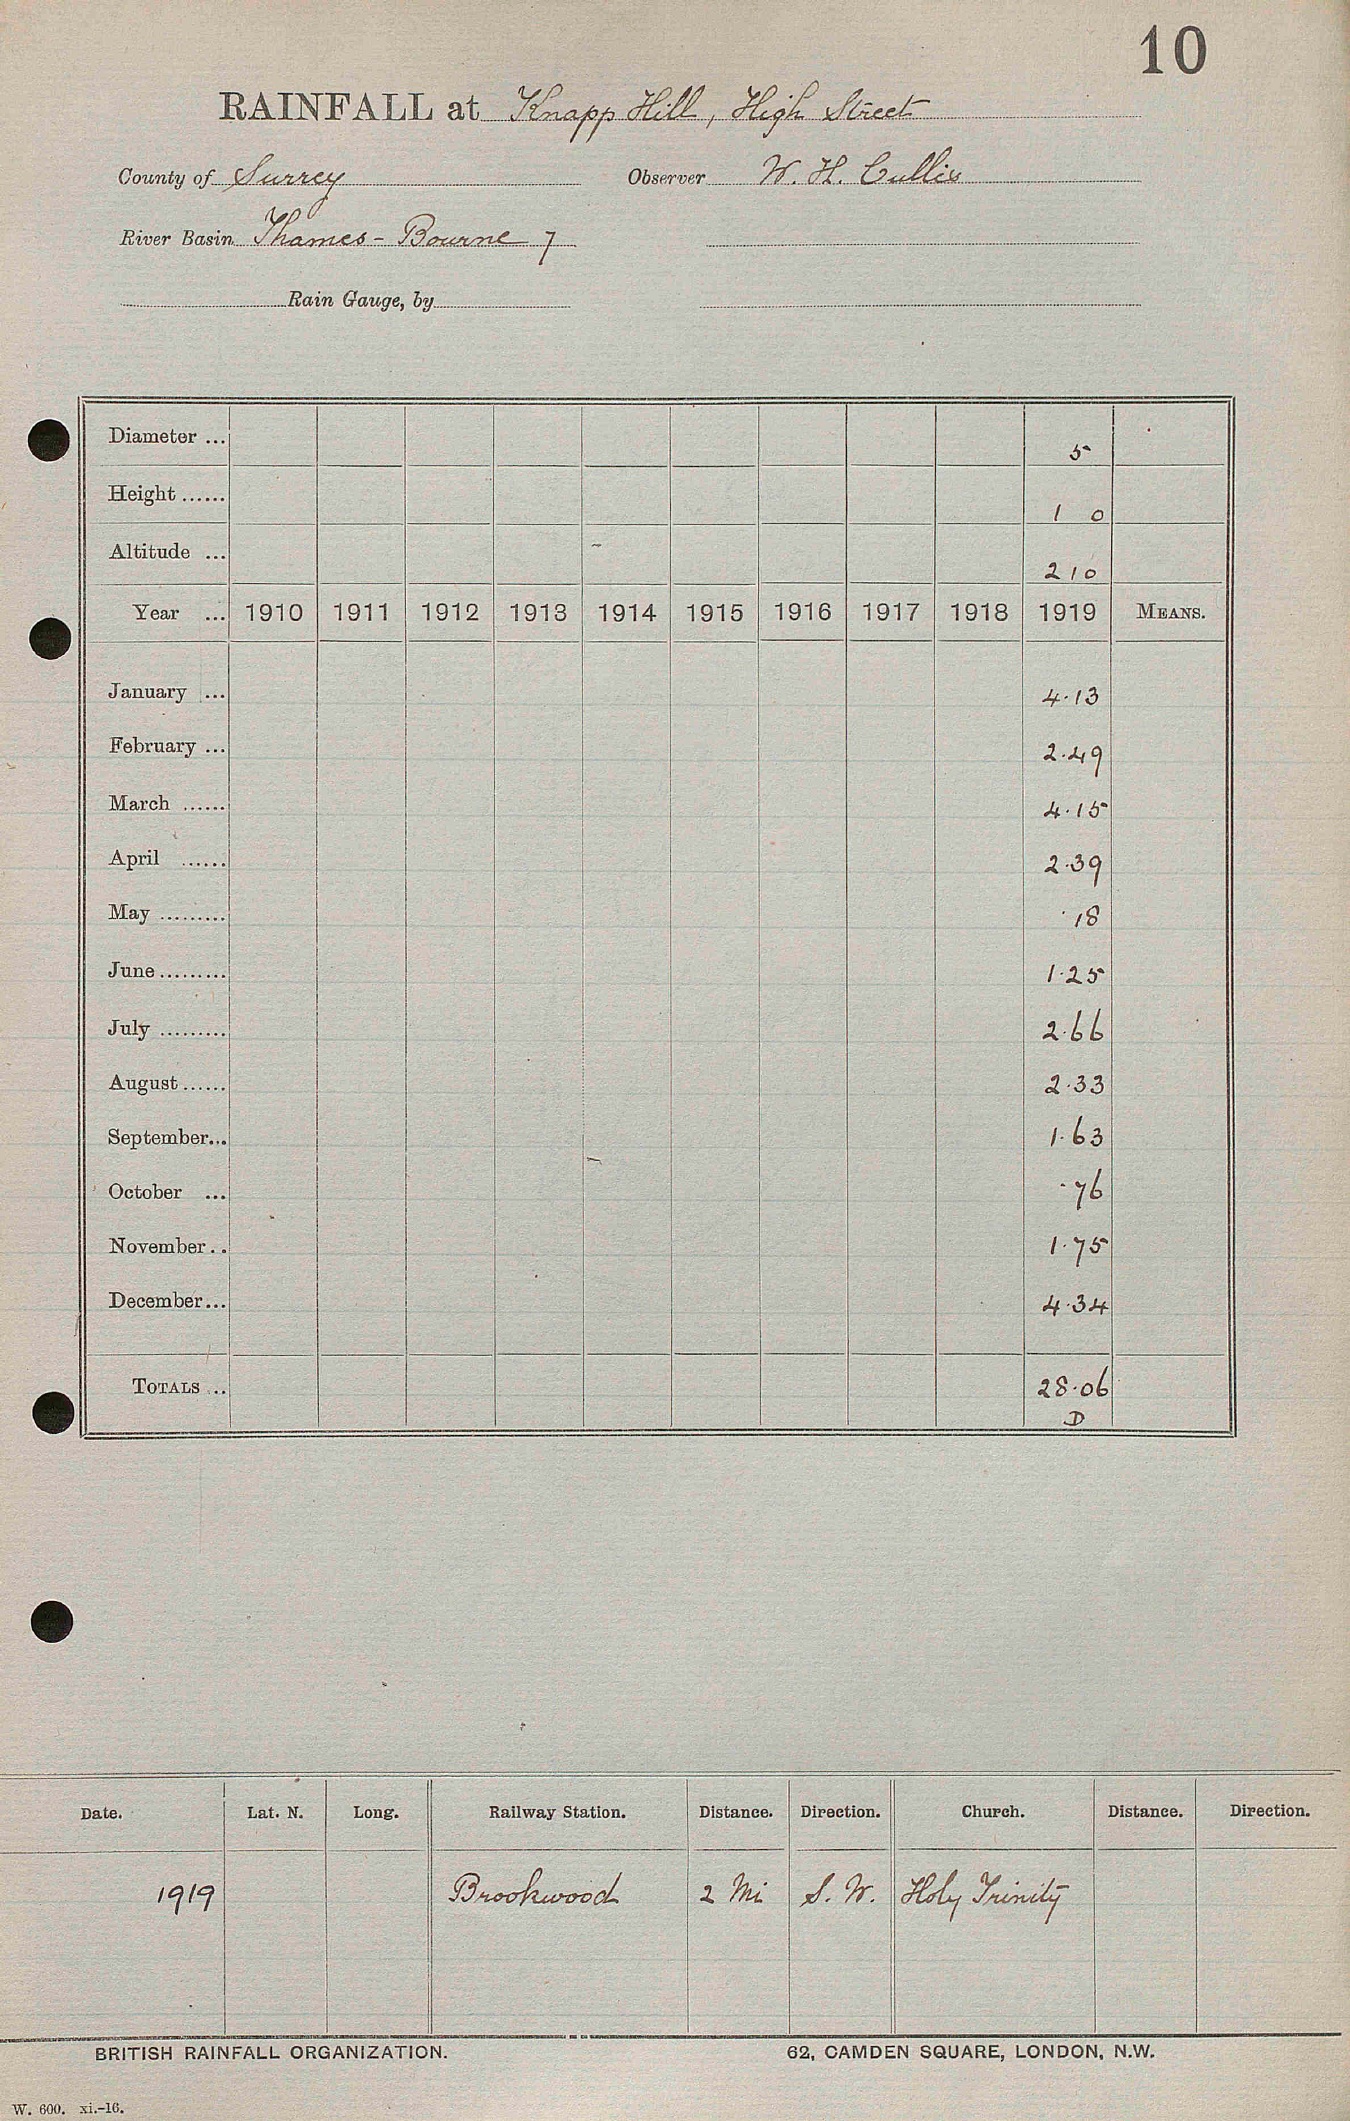 10
RAINFALL at Knapp Hill, High Street
County of Surrey Observer W. H. Cullis
River Basin Thames - Bourne 7
Rain Gauge, by
Diameter ... 5
Height ...... 1 0
Altitude ... 210
Year ... 1910 1911 1912 1913 1914 1915 1916 1917 1918 1919 MEANS.
January ... 4.13
February ... 2.49
March ...... 4.15
April ...... 2.39
May ......... .18
June ......... 1.25
July ......... 2.66
August ...... 2.33
September... 1.63
October ... .76
November .. 1.75
December... 4.34
TOTALS ... 28.06
D
Date. Lat. N. Long. Railway Station. Distance. Direction. Church. Distance. Direction.
1919 Brookwood 2 Mi S. W. Holy Trinity
BRITISH RAINFALL ORGANIZATION. 62, CAMDEN SQUARE, LONDON, N.W.
W. 600. xi.-16.